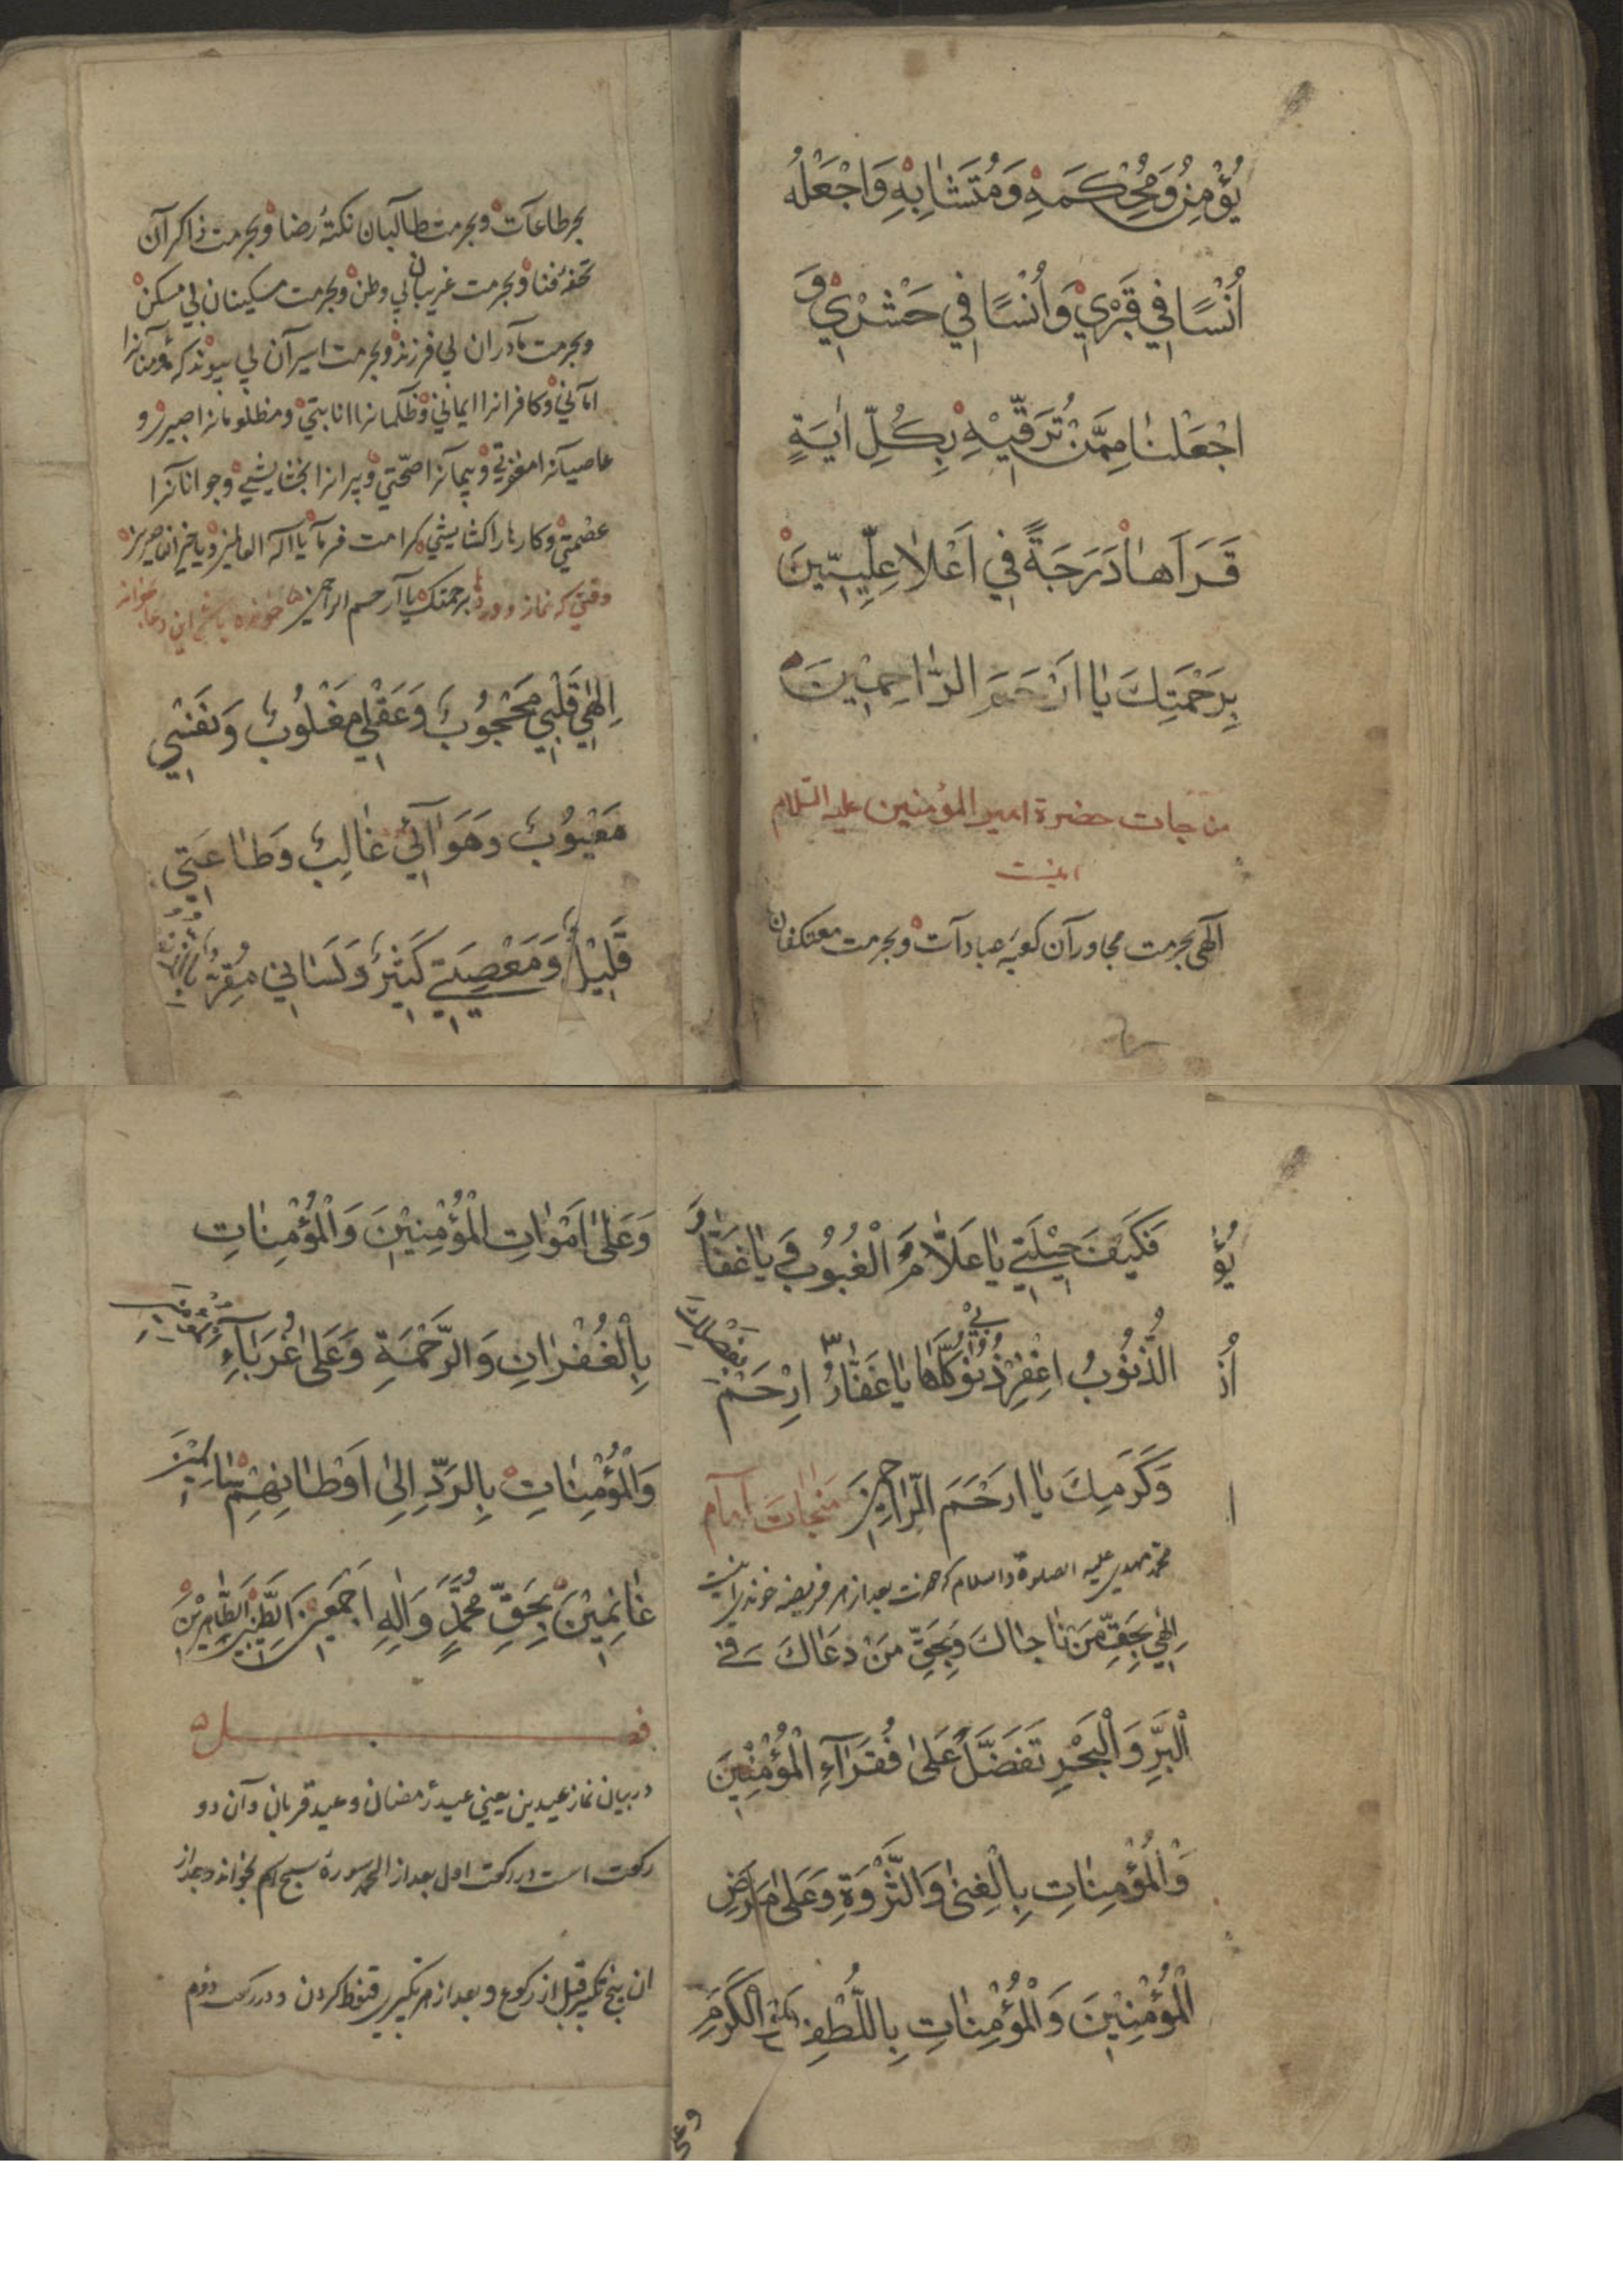 يُؤْمِنُ وَمُحْكَمَهِ وَمُتَشَابِهِ وَاجْعَلْهُ
أُنْسًا فِي قَبْرِيْ وَأُنْسًا فِي حَشْرِيْ وَ
اجْعَلْنَا مِمَّنْ تُرَقِّيْهِ بِكُلِّ اٰيَةٍ
قَرَاَهَا دَرَجَةً فِي اَعْلَا عِلِّيِّينَ
بِرَحْمَتِكَ يَا اَرْحَمَ الرَّاحِمِيْنَ
من جات حضرة امير المؤمنين عليه السّلام
اينست
الهى بحرمت مجاورآن كعبهٔ عبادآت وبحرمت معتكفان
بحر طاعآت وبحرمت طالبان نكتهٔ رضا وبحرمت ذاكرآن
تحفهٔ فنا وبحرمت غريبان بي وطن وبحرمت مسكينان بي مسكن
وبحرمت مادران بي فرزند وبحرمت اسيرآن بي پيوند كه مؤمنآنرا
امآني وكافرانرا ايماني وظالمانرا انابتي ومظلومانرا صبرى و
عاصيآنرا مغفرتي وبيمآرانرا صحّتي وپيرانرا بخشايشي وجوانآنرا
عصمتي وكارهارا كشايشي كرامت فرما يا اله العالمين ويا خير الناصرين
برحمتك يا آرحم الراحمين
وقتي كه نماز وورد خونده باشد اين دعا بخواند
اِلٰهِي قَلْبِي مَحْجُوْبٌ وَعَقْلِي مَغْلُوْبٌ وَنَفْسِي
مَعْيُوْبٌ وَهَوَآئِي غَالِبٌ وَطَاعَتِي
قَلِيْلٌ وَمَعْصِيَتِي كَثِيْرٌ وَلِسَانِي مُقِرٌّ بِالذُّنُوْبِ
فَكَيْفَ حِيْلَتِي يَا عَلَّامَ الْغُيُوْبِ وَيَا غَفَّارُ
الذُّنُوْبُ اغْفِرْ ذُنُوْبِيْ كُلَّهَا يَا غَفَّارُ ارْحَمْ بِفَضْلِكَ
وَكَرَمِكَ يَا ارْحَمَ الرَّاحِمِيْنَ منجات امام
محمّد مهدى عليه الصلوة والسلام كه حضرت بعد از هر فريضه خوندى اينست
اِلٰهِي بِحَقِّ مَنْ نَاجَاكَ وَبِحَقِّ مَنْ دَعَاكَ فِي
الْبَرِّ وَالْبَحْرِ تَفَضَّلْ عَلٰى فُقَرَآءِ الْمُؤْمِنِيْنَ
وَالْمُؤْمِنَاتِ بِالْغِنٰى وَالثَّرْوَةِ وَعَلٰى مَرْضَ
الْمُؤْمِنِيْنَ وَالْمُؤْمِنَاتِ بِاللُّطْفِ وَالْكَرَمِ
وعلى
وَعَلٰى اَمْوَاتِ الْمُؤْمِنِيْنَ وَالْمُؤْمِنَاتِ
بِالْغُفْرَانِ وَالرَّحْمَةِ وَعَلٰى غُرَبَآءِ الْمُؤْمِنِيْنَ
وَالْمُؤْمِنَاتِ بِالرَّدِّ اِلٰى اَوْطَانِهِمْ سَالِمِيْنَ
غَانِمِيْنَ بِحَقِّ مُحَمَّدٍ وَاٰلِهِ اَجْمَعِيْنَ الطَّيِّبِيْنَ الطَّاهِرِيْنَ
فصل
در بيان نماز عيدين يعني عيد رمضان وعيد قربان وآن دو
ركعت است در ركعت اول بعد از الحمد سورهٔ سبح اسم بخواند وبعد از
ان پنج تكبير قبل از ركوع وبعد از هر تكبير قنوط كردن ودر ركعت دوم